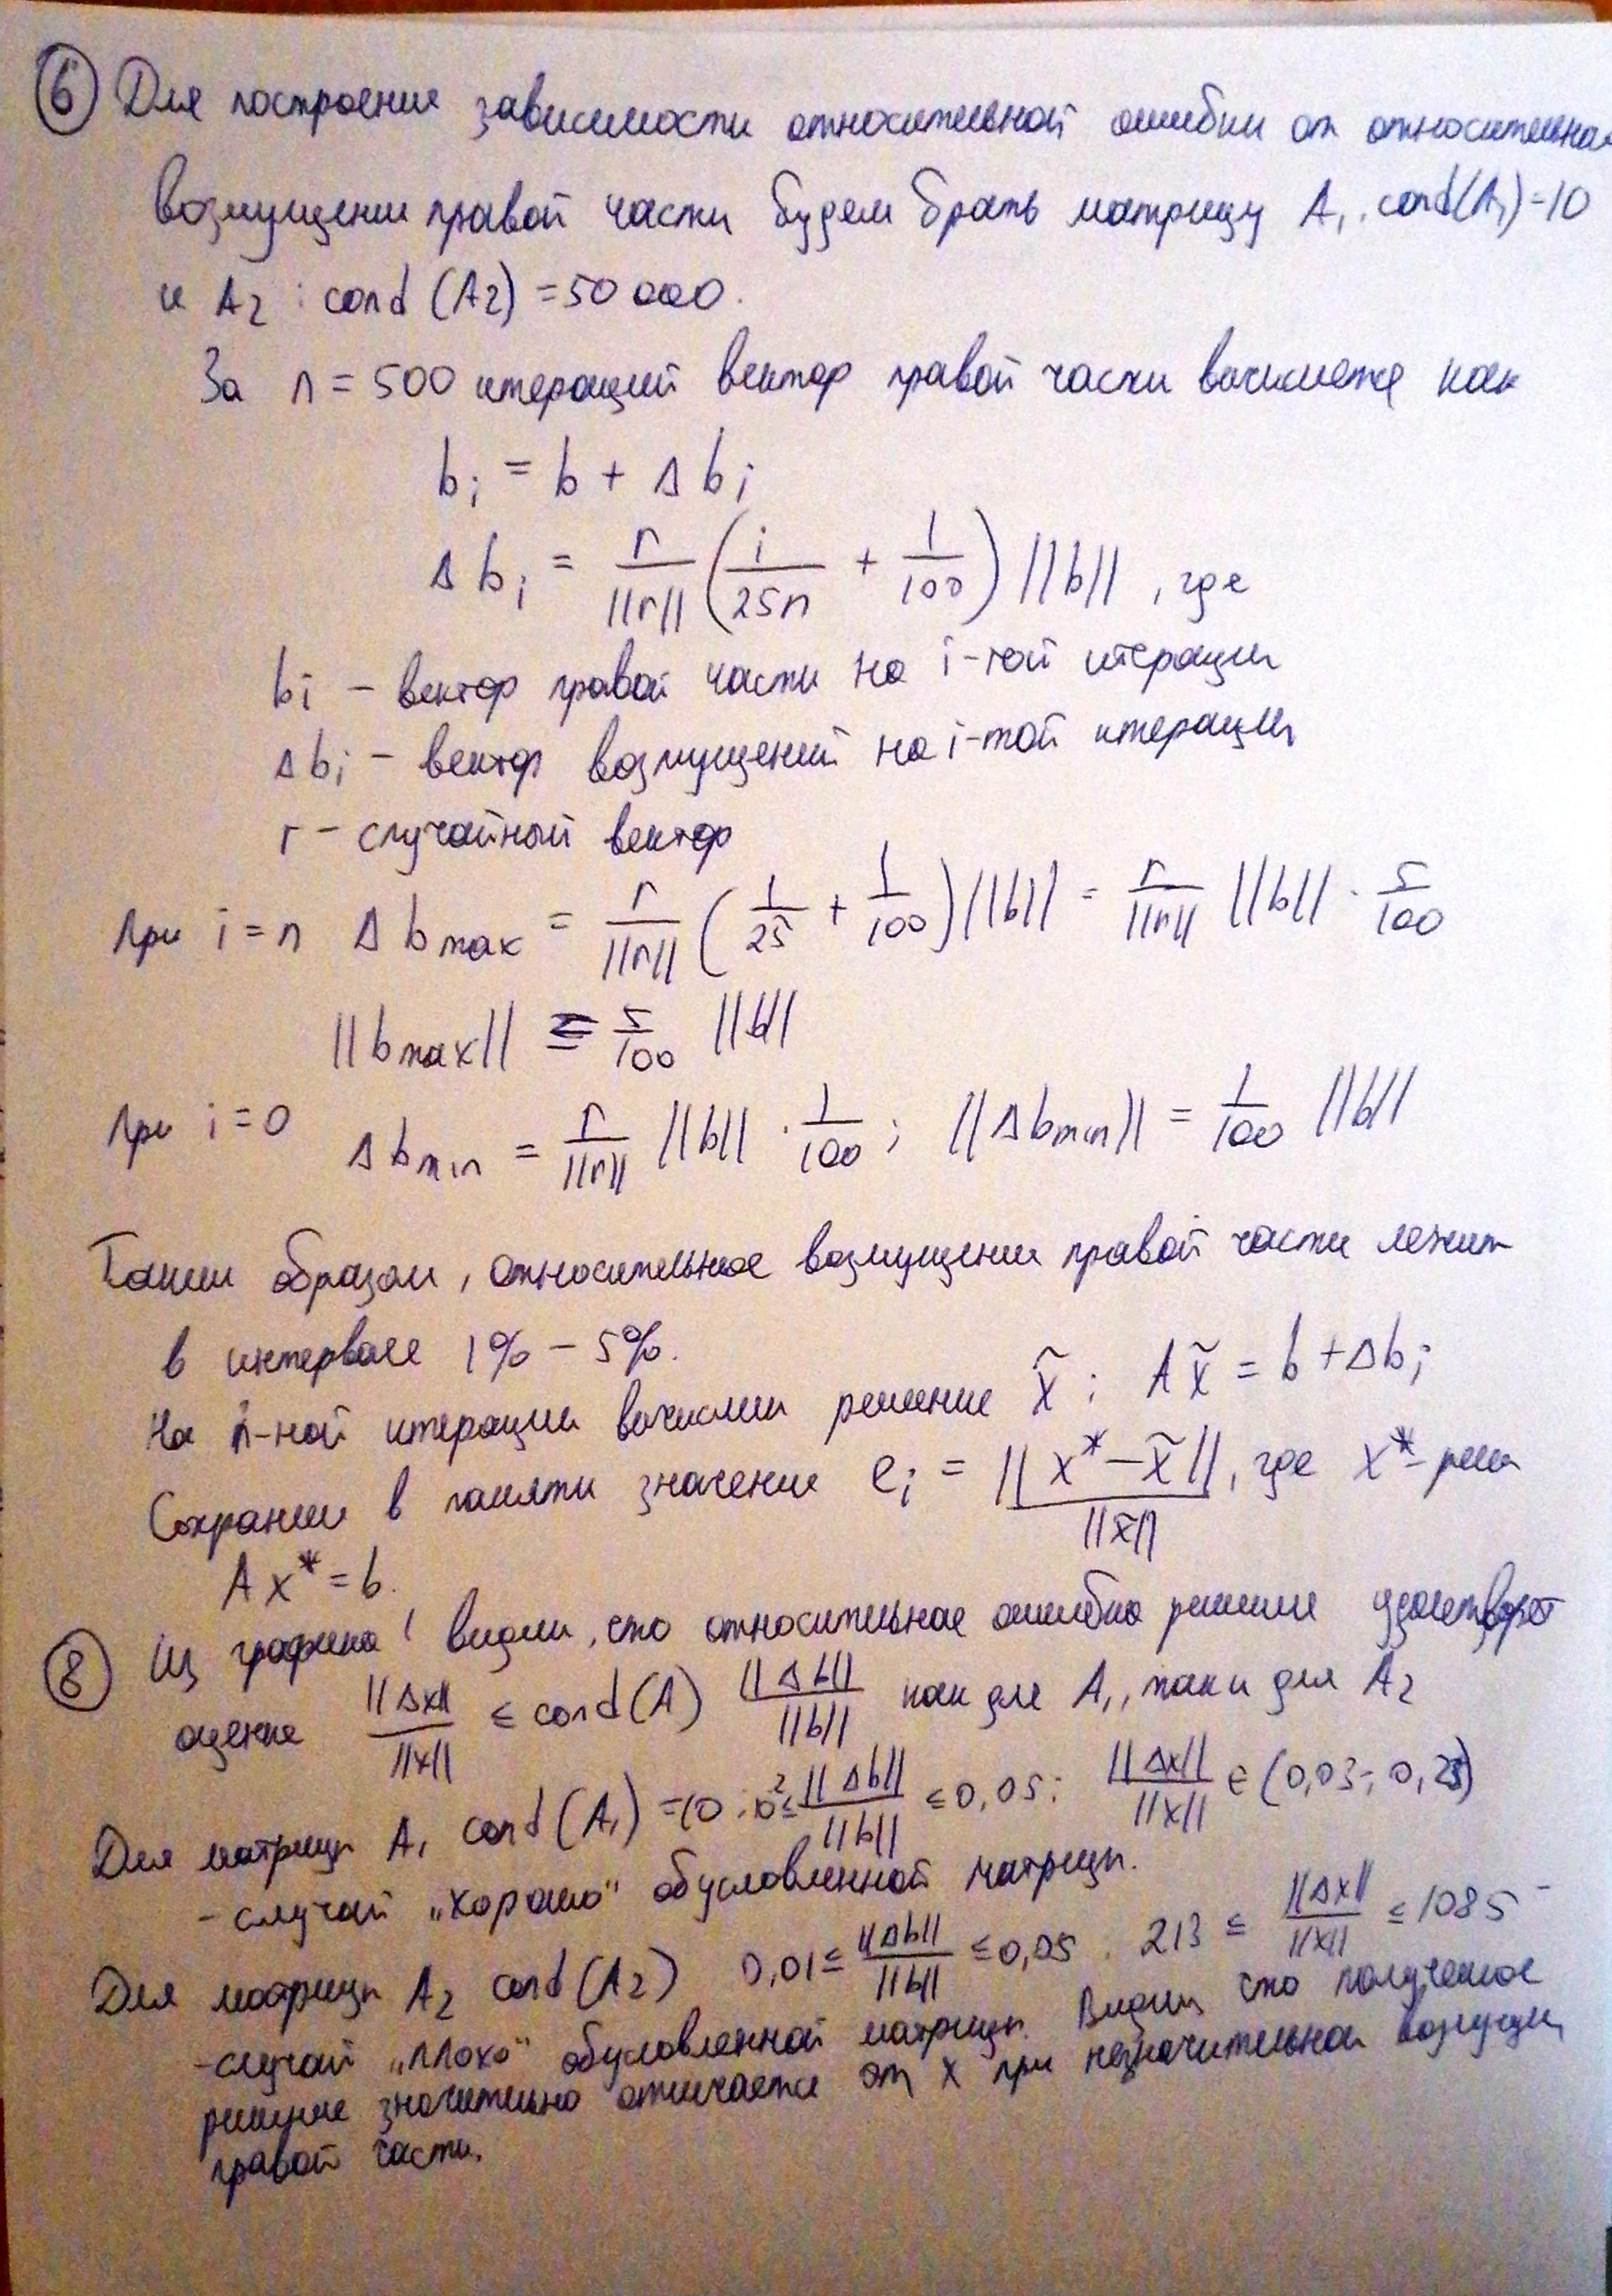 ⑥ Для построение зависимости относительной ошибки от относительная
возмущении правой части будем брать матрицу A₁ : cond(A₁)=10
и A₂ : cond (A₂) = 50 000.
За n = 500 итераций вектор правой части вычисляется как
bᵢ = b + Δbᵢ
Δbᵢ = r/||r|| (i/25n + 1/100) ||b||, где
bᵢ – вектор правой части на i-той итерации
Δbᵢ – вектор возмущений на i-той итерации
r – случайный вектор
при i = n Δb max = r/||r|| (1/25 + 1/100) ||b|| = r/||r|| ||b|| · 5/100
||b max|| = 5/100 ||b||
при i = 0 Δb min = r/||r|| ||b|| · 1/100 ; ||Δb min|| = 1/100 ||b||
Таким образом, относительное возмущении правой части лежит
в интервале 1% – 5%.
На i-ной итерации вычислим решение x̃ : Ax̃ = b + Δbᵢ
Сохраним в памяти значение eᵢ = ||x* – x̃||/||x̃||, где x* – реш
Ax* = b.
⑧ Из графика видим, что относительная ошибка решения удовлетворяет
оценке ||Δx||/||x|| ≤ cond(A) ||Δb||/||b|| как для A₁, так и для A₂
Для матрицы A₁ cond(A₁) = 10 : ≤ ||Δb||/||b|| ≤ 0,05 ; ||Δx||/||x|| ∈ (0,03 ; 0,25)
– случай „хорошо" обусловленной матрицы.
Для матрицы A₂ cond(A₂) 0,01 ≤ ||Δb||/||b|| ≤ 0,05 . 213 ≤ ||Δx||/||x|| ≤ 1085 –
– случай „плохо" обусловленной матрицы. Видим что полученное
решение значительно отличается от x при незначительной возмущен
правой части.